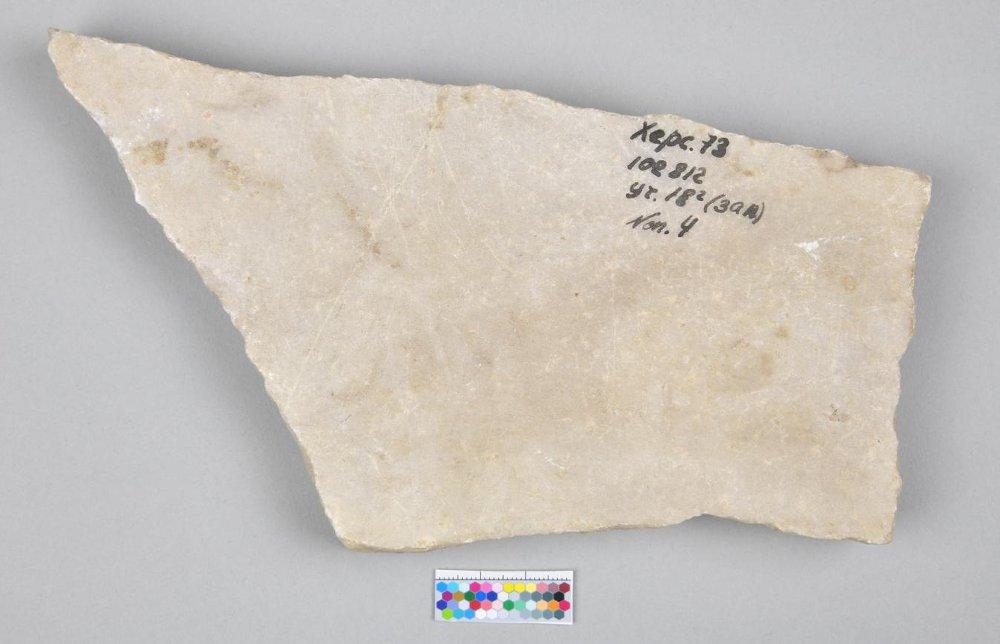 Херс. 73
102 812
уч. 18² (зап)
Поп. 4